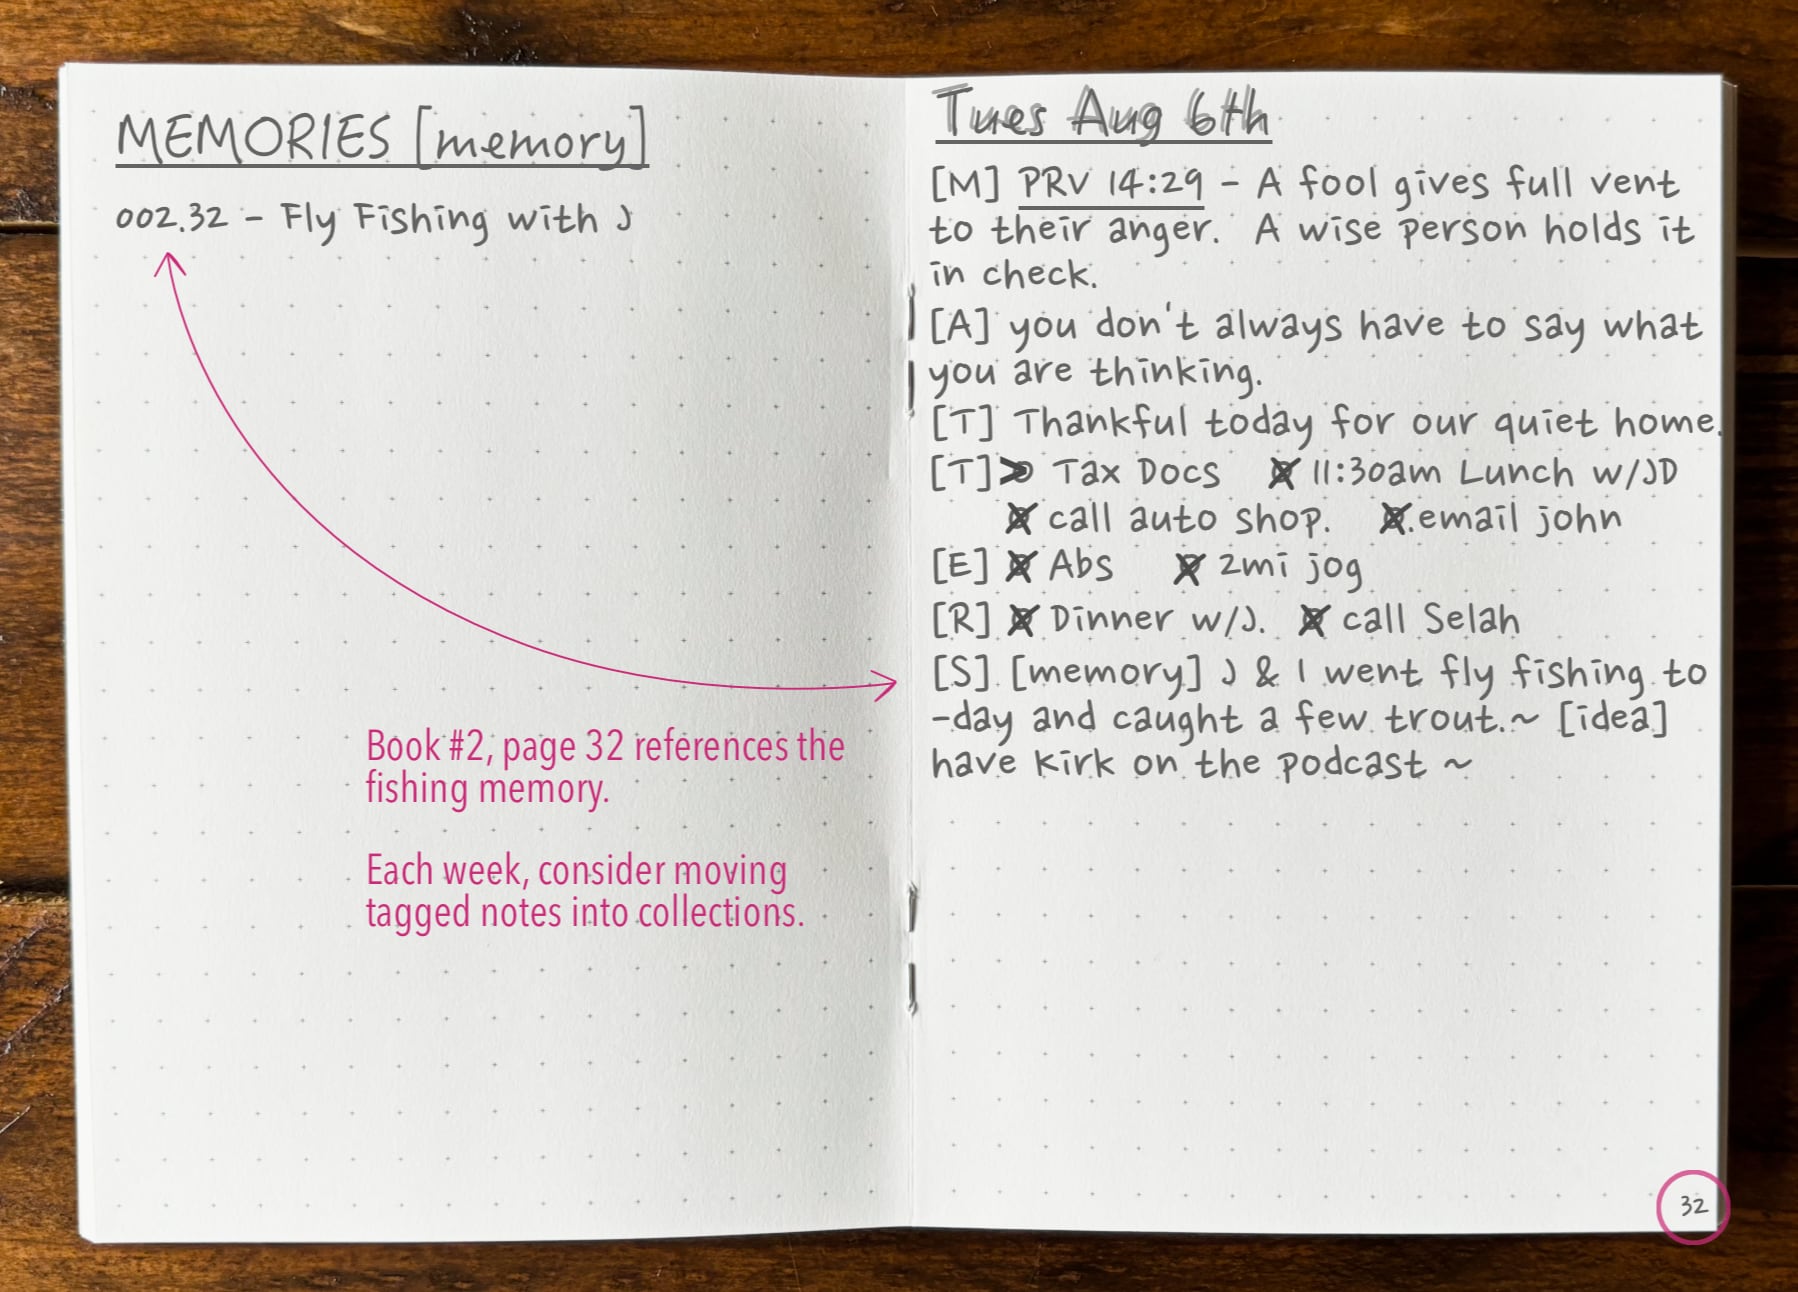 MEMORIES [memory]
002.32 - Fly Fishing with J
Book #2, page 32 references the
fishing memory.
Each week, consider moving
tagged notes into collections.
Tues Aug 6th
[M] PRV 14:29 - A fool gives full vent
to their anger. A wise person holds it
in check.
[A] you don't always have to say what
you are thinking.
[T] Thankful today for our quiet home.
[T] > Tax Docs x 11:30am Lunch w/JD
x call auto shop. x email john
[E] x Abs x 2mi jog
[R] x Dinner w/J. x call Selah
[S] [memory] J & I went fly fishing to
-day and caught a few trout. ~ [idea]
have Kirk on the podcast ~
32